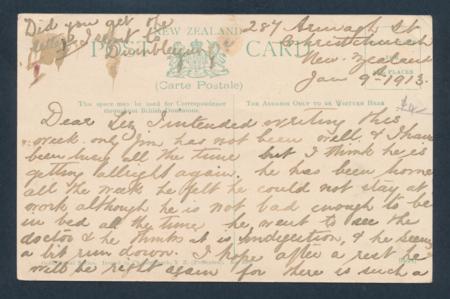 Did you get the
letter I sent to
Dimbleby
287 Armagh St
Christchurch
New Zealand
Jan 9th 1913.
NEW ZEALAND
POST CARD
(Carte Postale)
This space may be used for Correspondence
throughout British Dominions.
THE ADDRESS ONLY TO BE WRITTEN HERE
Dear Liz I intended writing this
week only Jim has not been well & I have
been busy all the time but I think he is
getting allright again. he has been home
all the week he felt he could not stay at
work although he is not bad enough to be
in bed all the time he went to see the
doctor & he thinks it is indigestion, & he seems
a bit run down. I hope after a rest he
will be right again for there is such a